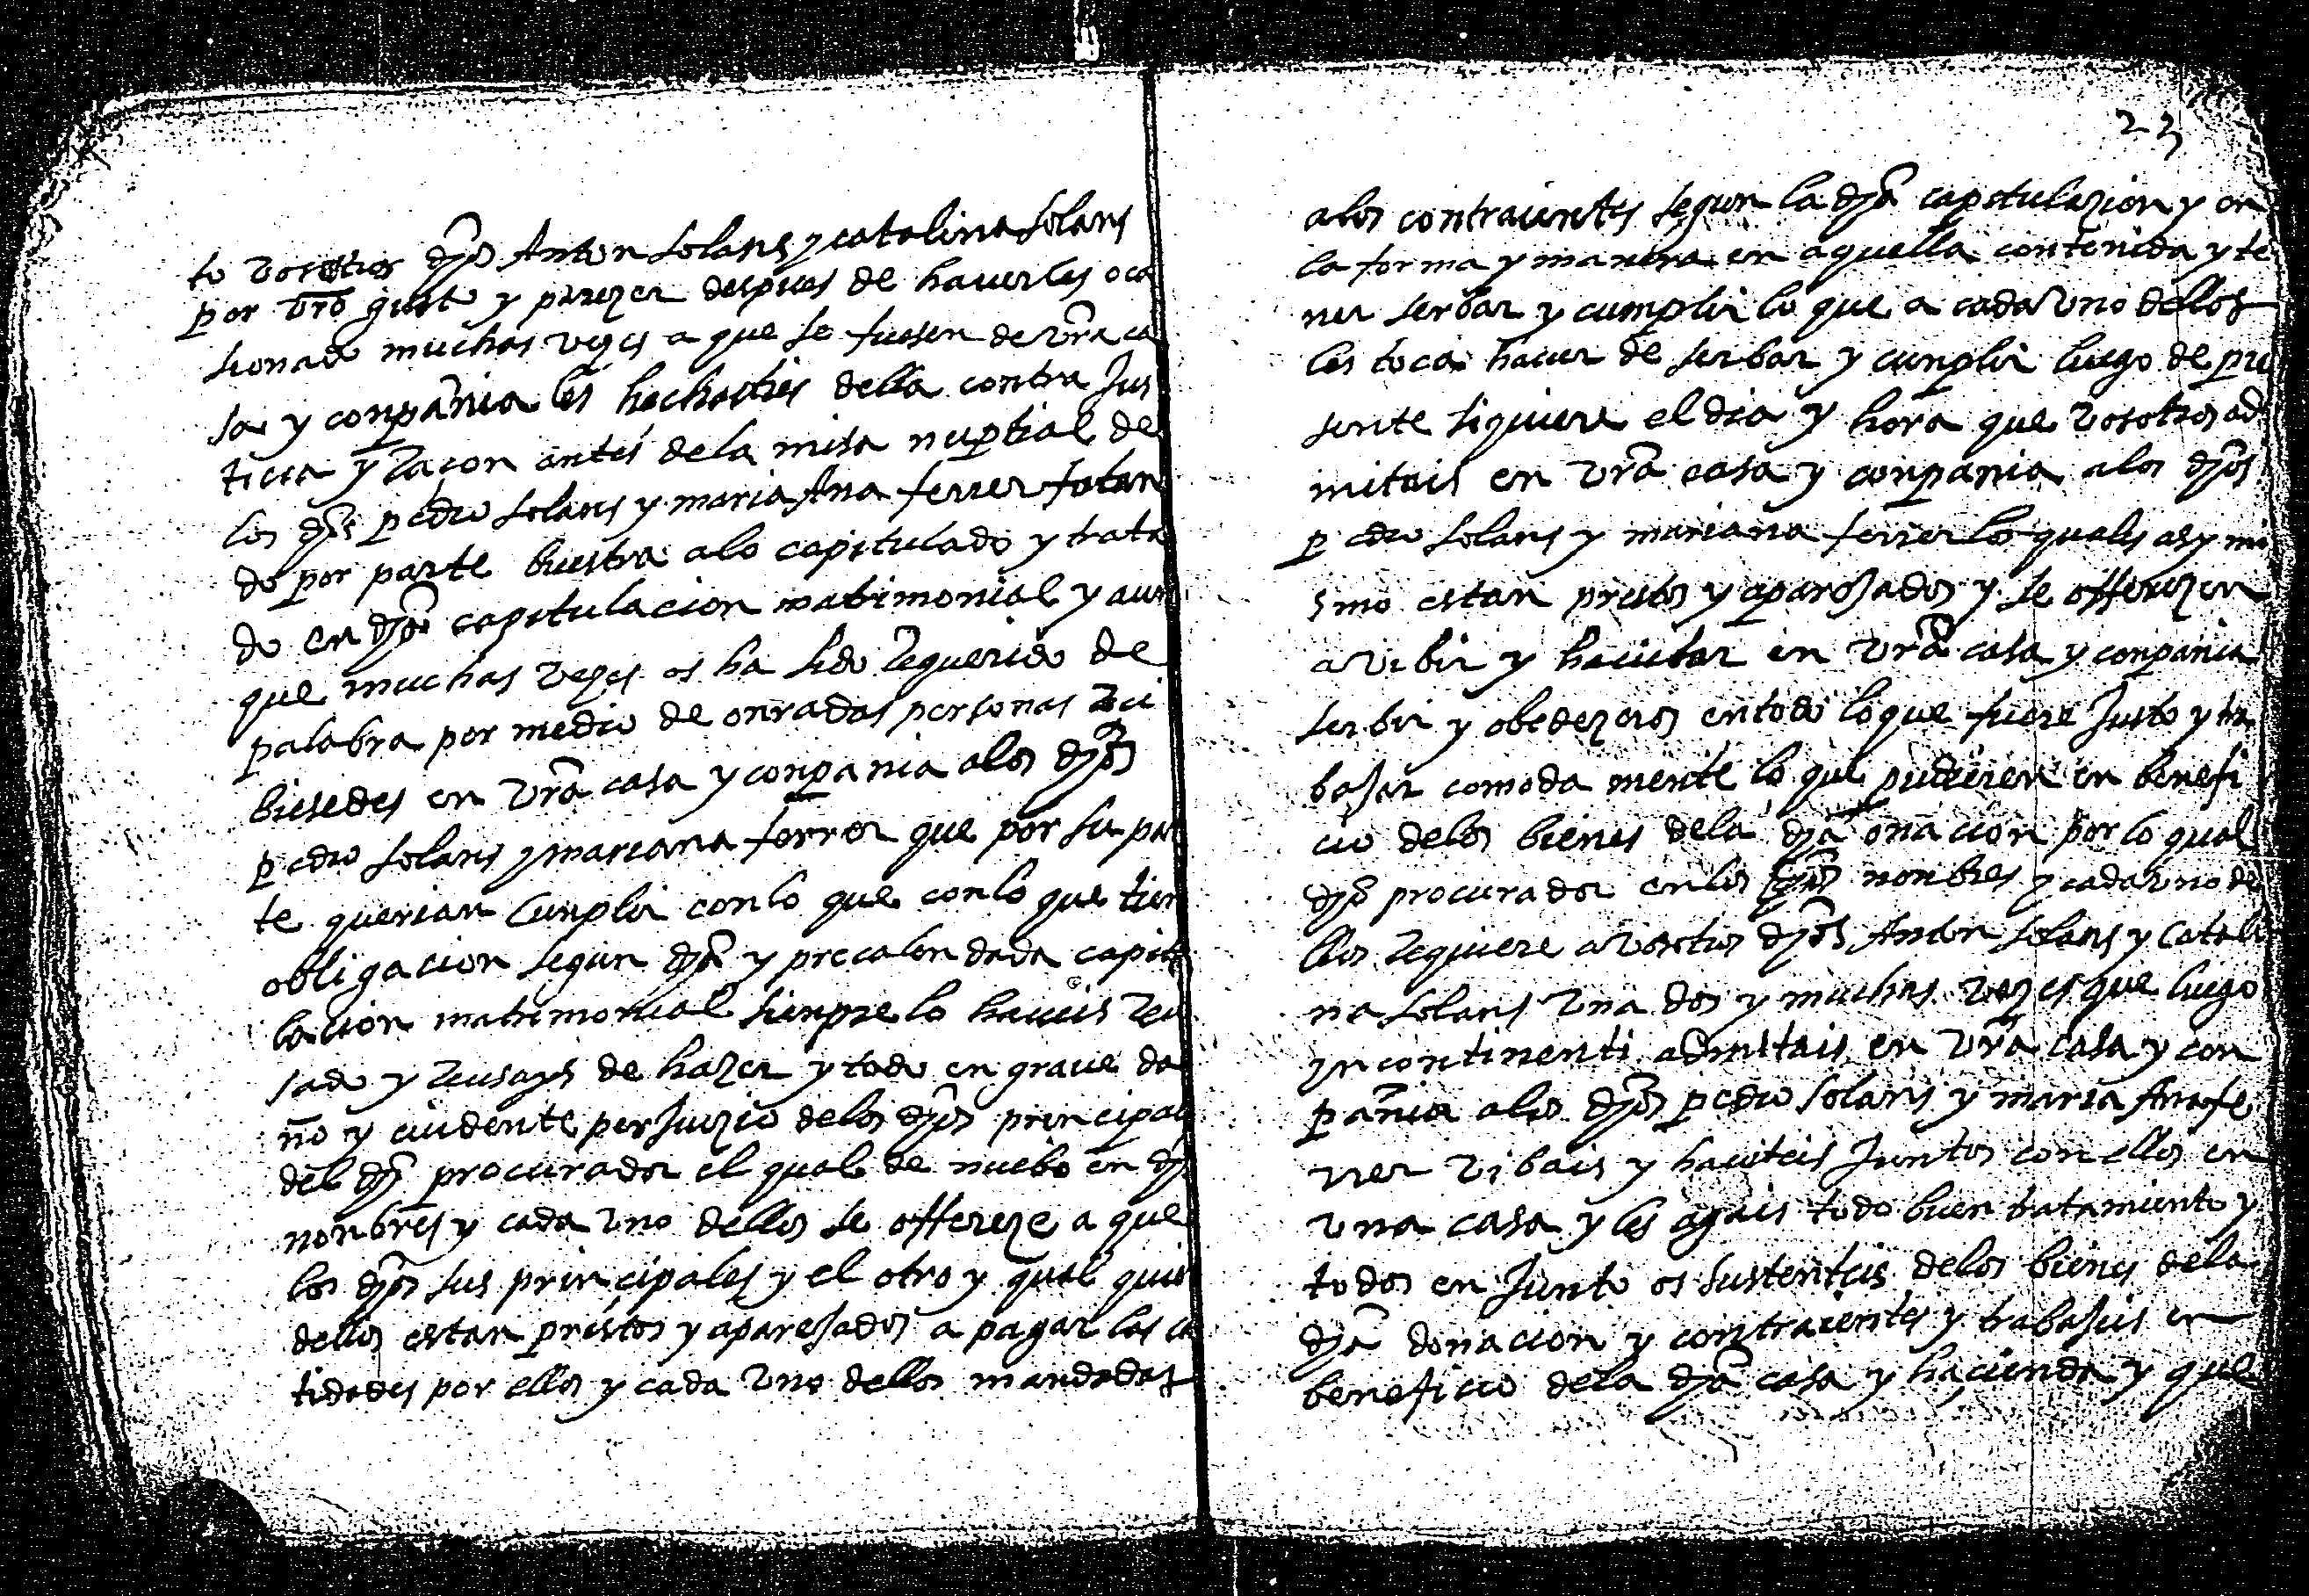 to vosotros dhos Anton Solans y catalina Solans
por vro gusto y parezer despues de hauerles oca
sionado muchas vezes a que se fuesen de vra ca
sa y conpañia les hechastes della contra Jus
ticia y raçon antes de la misa nuptial de
los dhos pedro Solans y maria Ana ferrer faltan
do por parte buestra a lo capitulado y trata
do en dha capitulacion matrimonial y aun
que muchas vezes os ha sido requerido de
palabra por medio de onradas personas reci
biesedes en vra casa y conpania a los dhos
pedro Solans y mariana ferrer que por su par
te querian cunplir con lo que con lo que tien
obligacion segun dha y precalendada capitu
lacion matrimonial sienpre lo haueis recu
sado y recusays de hazer y todo en graue da
ño y euidente perJuizio de los dhos principales
del dho procurador el qual de nuebo en dhos
nonbres y cada vno dellos se offereze a que
los dhos sus principales y el otro y qual quiere
dellos estan prestos y apareJados a pagar las can
tidades por ellos y cada vno dellos mandadas
23
a los contraientes segun la dha capitulazion y en
la forma y manera en aquella contenida y te
ner serbar y cumplir lo que a cada vno dellos
les toca hauer de serbar y cunplir luego de pre
sente siquiere el dia y hora que vosotros ad
mitais en vra casa y conpania a los dhos
pedro Solans y mariana ferrer los quales asy mi
smo estan prestos y apareJados y se offerezen
a vibir y hauitar en vra casa y conpania
serbir y obedezeros en todo lo que fuere Justo y tra
baJar comoda mente lo que pudieren en benefi
cio de los bienes de la dha onacion por lo qual
dho procurador en los dhos nonbres y cada vno de
llos requiere a vosotros dhos Anton Solans y Catali
na Solans vna dos y muchas vezes que luego
yncontinenti admitais en vra casa y con
pañia a los dhos pedro Solans y maria Ana fe
rrer vibais y hauiteis Juntos con ellos en
vna casa y les agais todo buen tratamiento y
todos en Junto os sustenteis de los bienes de la
dha donacion y contraientes y trabaJeis en
beneficio de la dha casa y hacienda y que